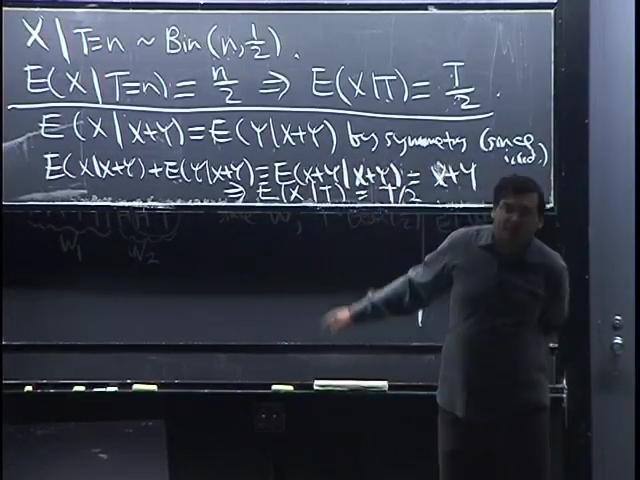 X | T=n ~ Bin(n, 1/2).
E(X | T=n) = n/2 ⇒ E(X|T) = T/2.
E(X | X+Y) = E(Y | X+Y) by symmetry (since i.i.d.)
E(X|X+Y) + E(Y|X+Y) = E(X+Y | X+Y) = X+Y
⇒ E(X|T) = T/2
W₁ W₂